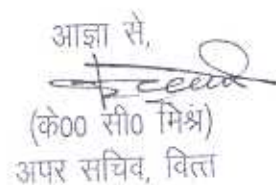 आज्ञा से,
(के०0 सी0 मिश्र)
अपर सचिव, वित्त